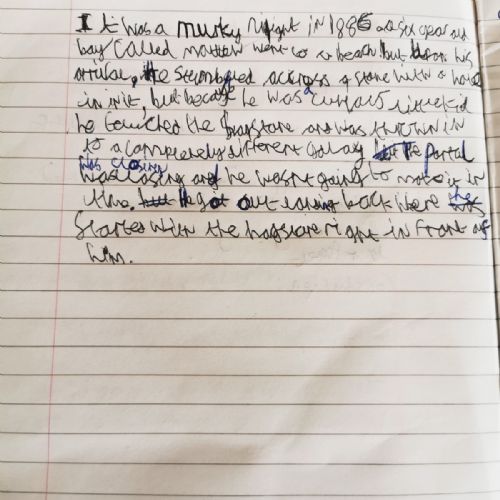 It was a murky Night in 1886 a six year old
boy called matthew went to a beach but upon his
arrival, He stumbled across a stone with a hole
in it, but because he was a curious little kid
he touched the hagstone and was thrown in
to a completely different Galaxy but the portal
was closing
was closing and he wasnt going to make it in
time. but He got out back where he was
Started with the hagstone right in front of
him.